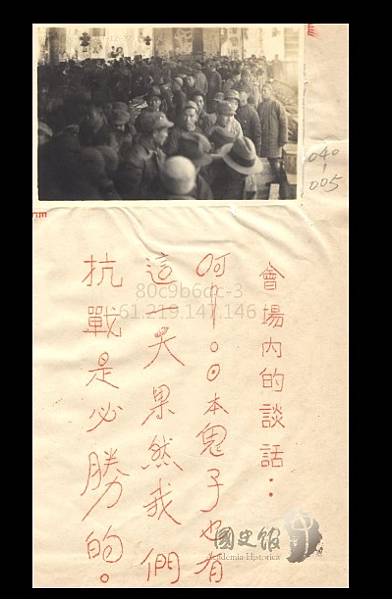 040-005
會場內的談話：
呵 日本鬼子也有
這一天果然我們
抗戰是必勝的。
80c9b6dc-3
61.219.147.146
國史館
Academia Historica